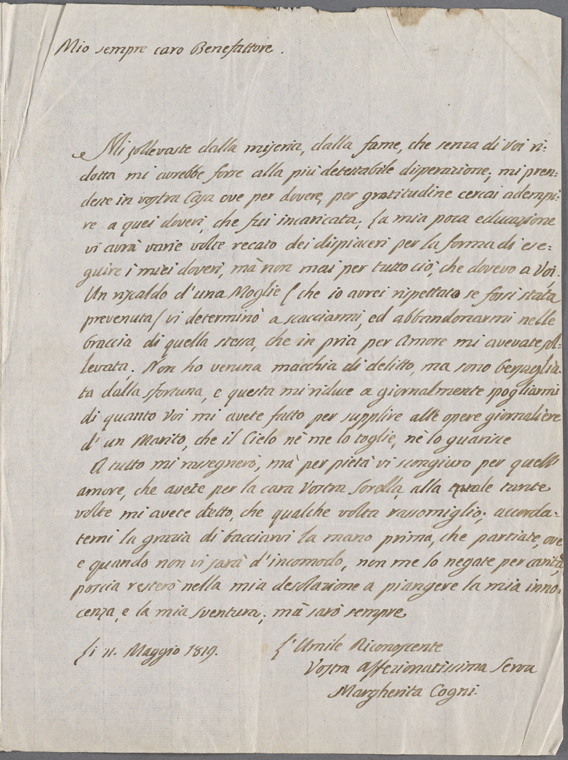 Mio sempre caro Benefattore.
Mi sollevaste dalla miseria, dalla fame, che senza di Voi ri-
dotta mi avrebbe forse alla più detestabile disperazione; mi pren-
deste in vostra Casa ove per dovere, per gratitudine cercai adempi-
re a quei doveri, che fui incaricata; La mia poca educazione
vi avrà varie volte recato dei dispiaceri per la forma di ese-
guire i miei doveri, mà non mai per tutto ciò, che dovevo a Voi.
Un riscaldo d'una Moglie (che io avrei rispettato se fossi stata
prevenuta( vi determinò a scacciarmi, ed abbandonarmi nelle
braccia di quella stessa, che in pria per Amore mi avevate sol-
levata. Non ho veruna macchia di delitto, ma sono bersaglia-
ta dalla sfortuna, e questa mi riduce a giornalmente spogliarmi
di quanto Voi mi avete fatto per supplire alle opere giornaliere
d'un Marito, che il Cielo nè me lo toglie, nè lo guarisce
A tutto mi rassegnerò, mà per pietà vi scongiuro per quell'
amore, che avete per la cara Vostra Sorella alla quale tante
volte mi avete detto, che qualche volta rassomiglio; accorda-
temi la grazia di bacciarvi la mano prima, che partiate, ove
e quando non vi sarà d'incomodo, non me lo negate per carità,
poscia resterò nella mia desolazione a piangere la mia inno-
cenza, e la mia sventura; mà sarò sempre
Li 11. Maggio 1819.
L'Umile Riconoscente
Vostra Affezionatissima Serva
Margherita Cogni.